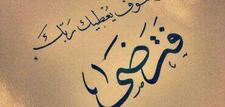 سوف يعطيك ربّك
فترضى